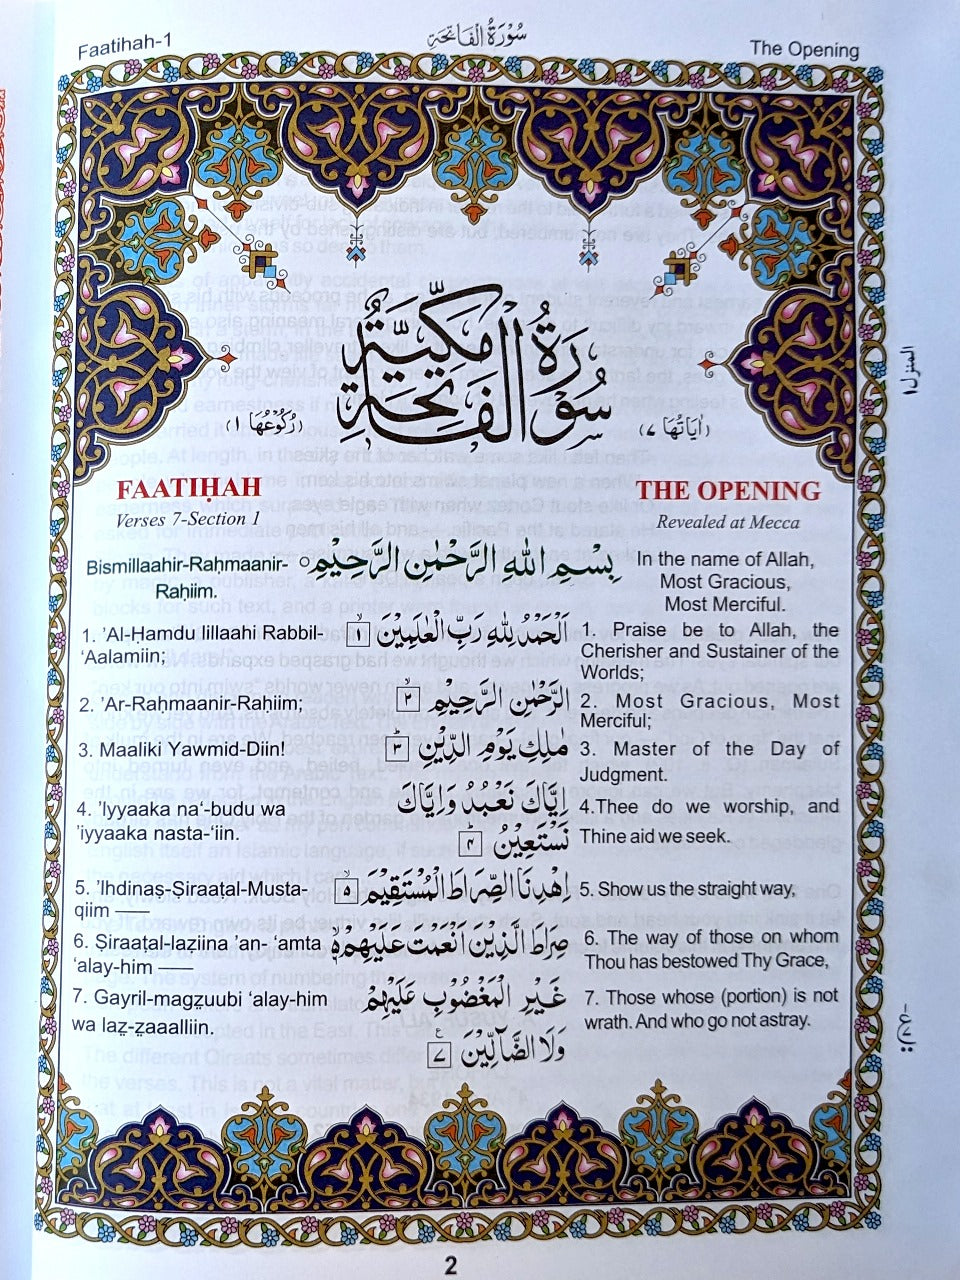 Faatihah-1 سُوْرَةُ الْفَاتِحَةِ The Opening
سُوْرَةُ الْفَاتِحَةِ مَكِّيَّةٌ
(اٰيَاتُهَا ٧) (رُكُوْعُهَا ١)
FAATIḤAH THE OPENING
Verses 7-Section 1 Revealed at Mecca
Bismillaahir-Raḥmaanir-
Raḥiim.
بِسْمِ اللّٰهِ الرَّحْمٰنِ الرَّحِيْمِ
In the name of Allah,
Most Gracious,
Most Merciful.
1. ’Al-Ḥamdu lillaahi Rabbil-
‘Aalamiin;
اَلْحَمْدُ لِلّٰهِ رَبِّ الْعٰلَمِيْنَ ١
1. Praise be to Allah, the
Cherisher and Sustainer of the
Worlds;
2. ’Ar-Raḥmaanir-Raḥiim;
الرَّحْمٰنِ الرَّحِيْمِ ٢
2. Most Gracious, Most
Merciful;
3. Maaliki Yawmid-Diin!
مٰلِكِ يَوْمِ الدِّيْنِ ٣
3. Master of the Day of
Judgment.
4. ’Iyyaaka na‘-budu wa
’iyyaaka nasta-‘iin.
اِيَّاكَ نَعْبُدُ وَاِيَّاكَ
نَسْتَعِيْنُ ٤
4.Thee do we worship, and
Thine aid we seek.
5. ’Ihdinaṣ-Ṣiraaṭal-Musta-
qiim
اِهْدِنَا الصِّرَاطَ الْمُسْتَقِيْمَ ٥
5. Show us the straight way,
6. Ṣiraaṭal-laẕiina ’an- ‘amta
‘alay-him ——
صِرَاطَ الَّذِيْنَ اَنْعَمْتَ عَلَيْهِمْ ٦
6. The way of those on whom
Thou has bestowed Thy Grace,
7. Gayril-magẓuubi ‘alay-him
wa laẓ-ẓaaalliin.
غَيْرِ الْمَغْضُوْبِ عَلَيْهِمْ
وَلَا الضَّآلِّيْنَ ٧
7. Those whose (portion) is not
wrath. And who go not astray.
المنزل ١
2